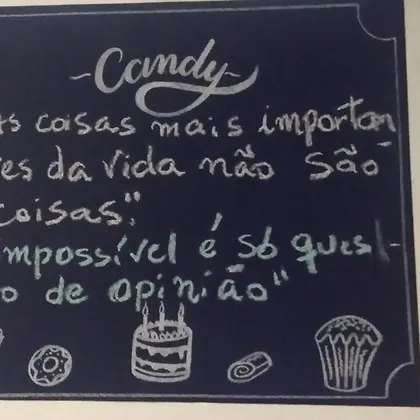 ~Candy~
As coisas mais importan
es da vida não são
coisas".
impossível é só ques
o de opinião"